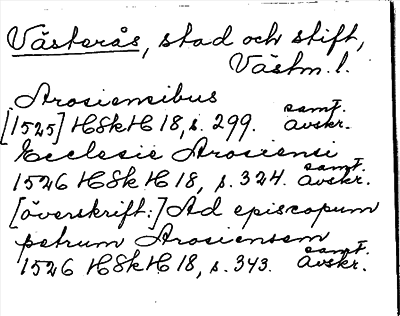 Västerås, stad och stift,
Västm. l.
Arosiensibus
[1525] HSkH 18, s. 299. samt. avskr.
Ecclesie Arosiensi
1526 HSkH 18, s. 324. samt. avskr.
[överskrift:] Ad episcopum
petrum Arosiensem
1526 HSkH 18, s. 343. samt. avskr.